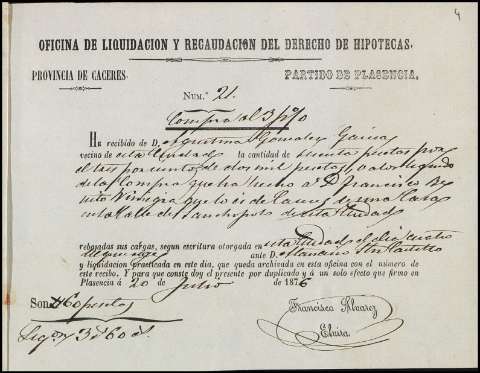 4
OFICINA DE LIQUIDACION Y RECAUDACION DEL DERECHO DE HIPOTECAS.
PROVINCIA DE CACERES. PARTIDO DE PLASENCIA.
NUM.° 21.
Compra al 3 p%
HA recibido de D. Agustina Gonzalez Garcia
vecino de esta Ciudad la cantidad de sesenta pesetas por
el tres por ciento de dos mil pesetas, valor liquido
de la Compra que ha hecho a D. Francisco
que lo es de la de una Casa
en la Calle de de esta Ciudad
rebajadas sus cargas, segun escritura otorgada en esta Ciudad el dia cuatro
ante D.
y liquidacion practicada en este dia, que queda archivada en esta oficina con el número de
este recibo. Y para que conste doy el presente por duplicado y á un solo efecto que firmo en
Plasencia á 20 de Julio de 1876
Francisco Alvarez
Elvira
Son 60 pesetas